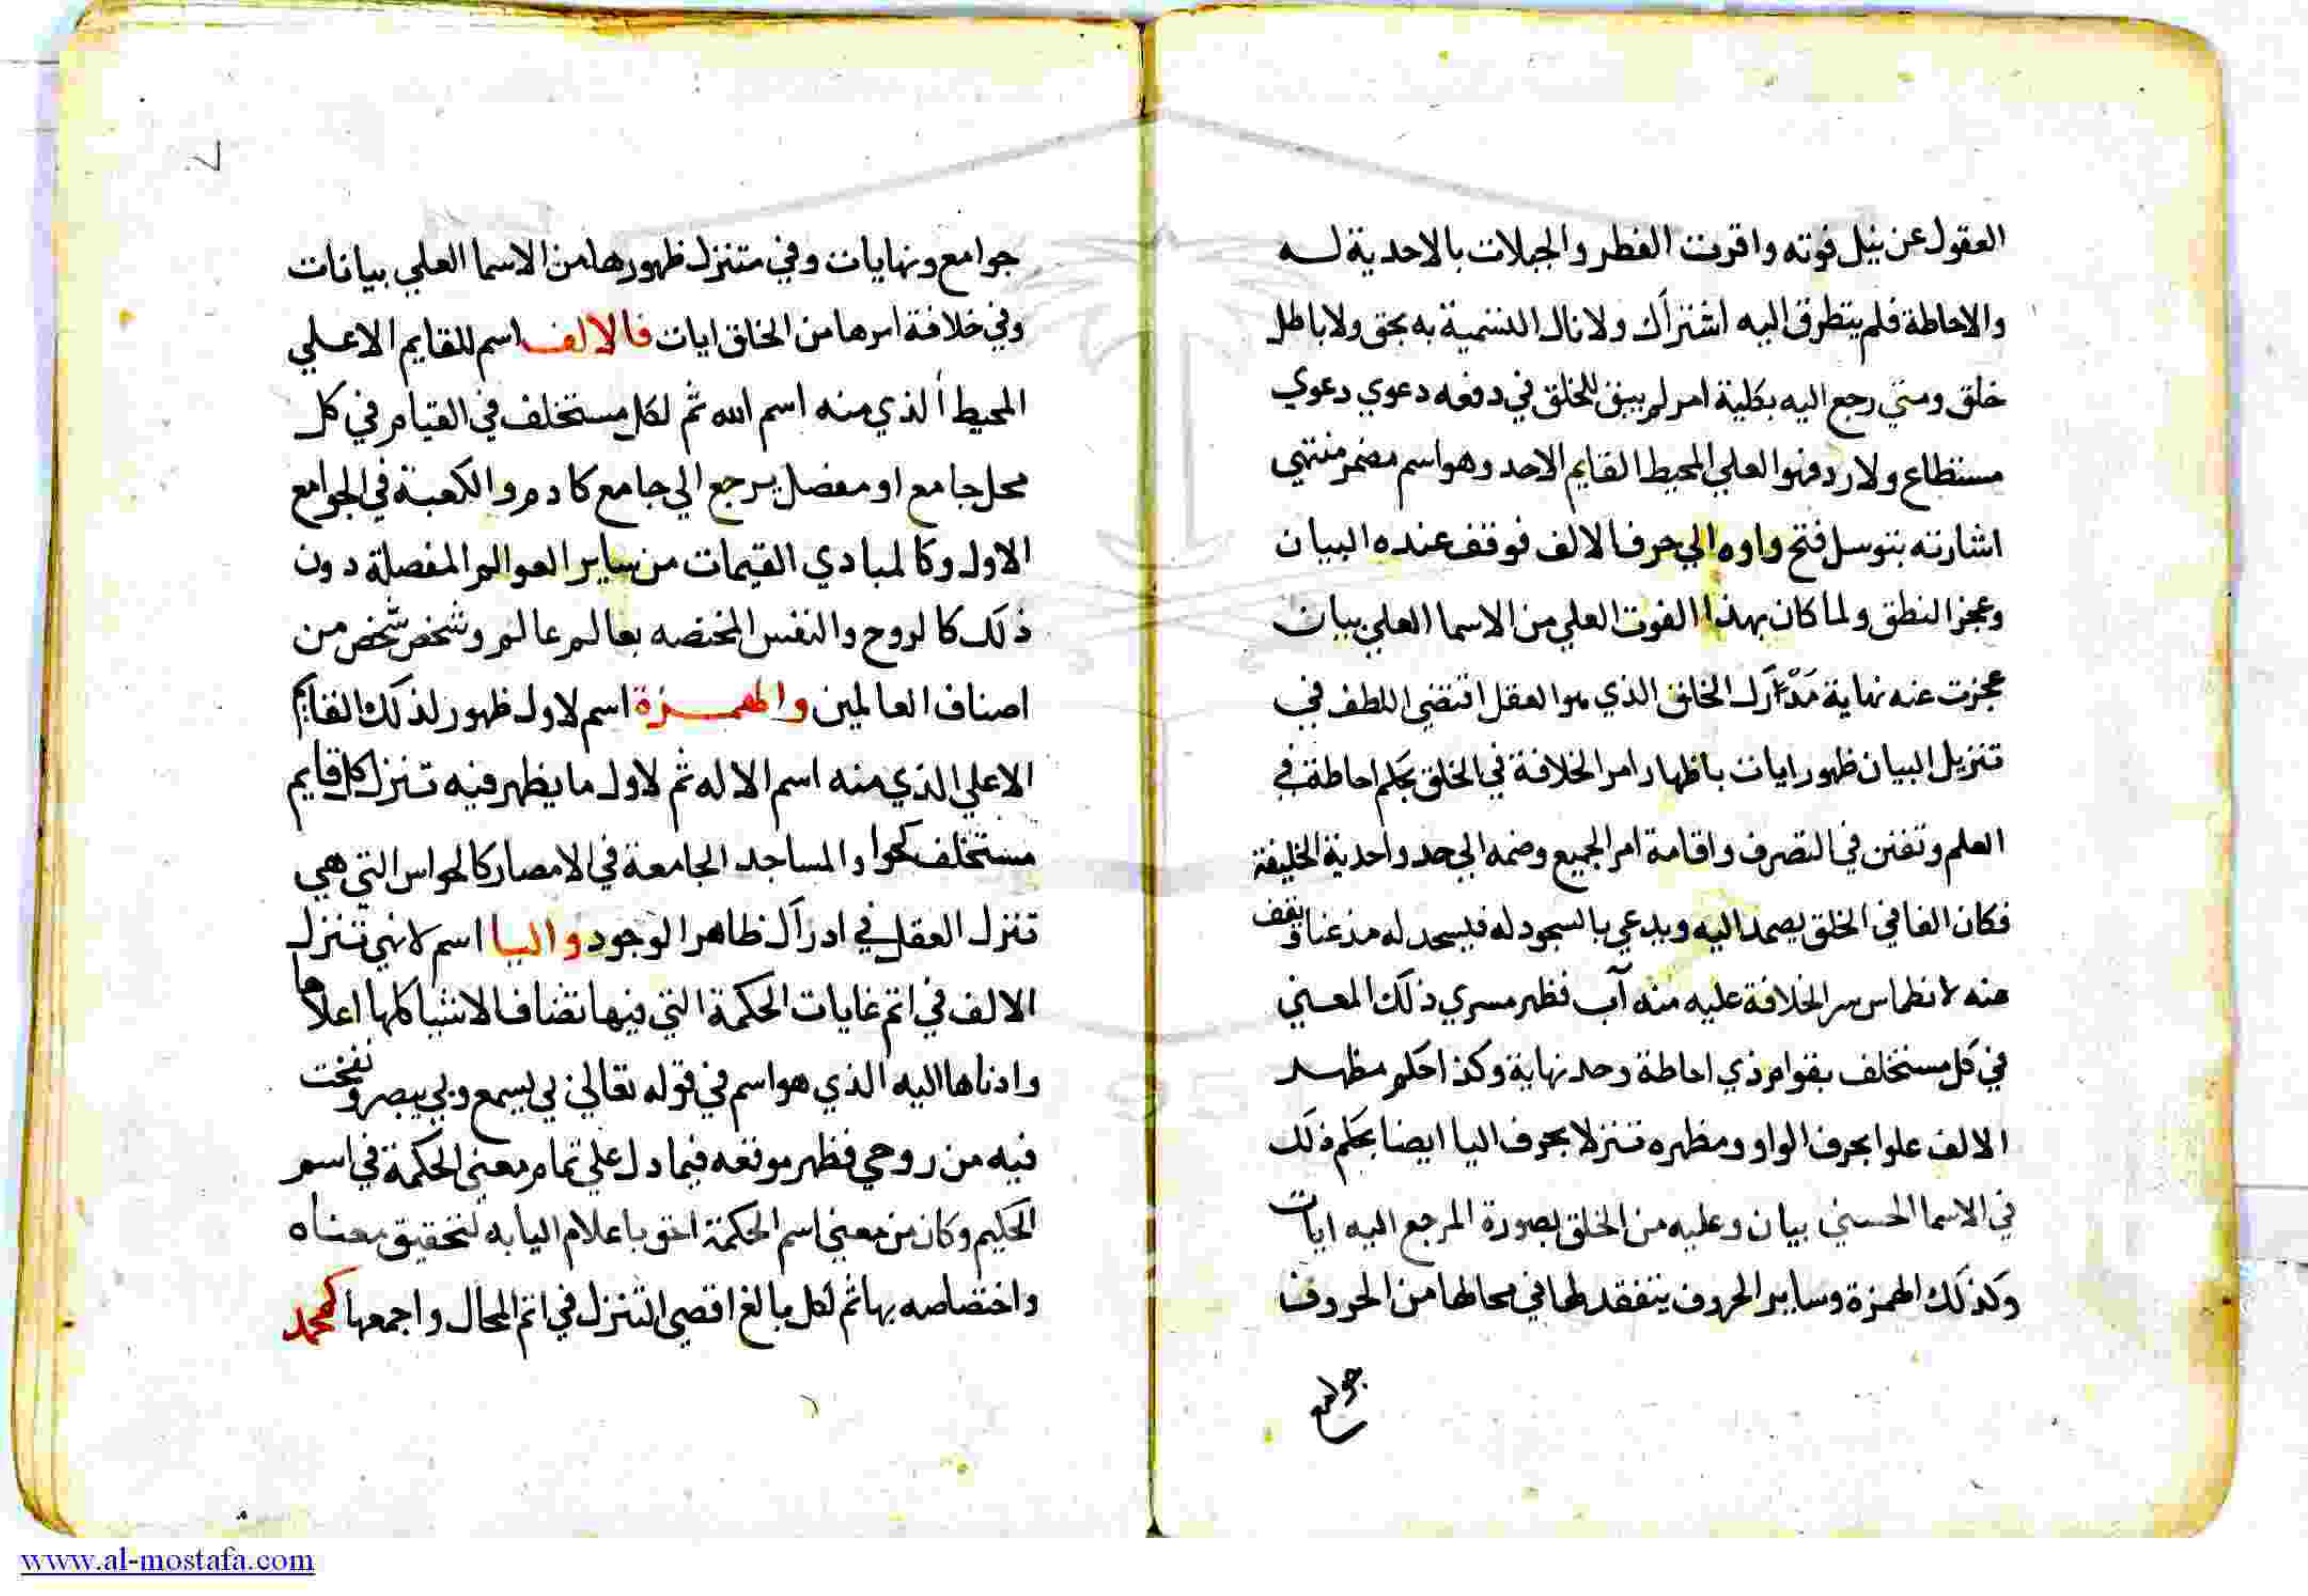 العقول عن نيل فوته واقرت الفطر والجبلات بالاحدية له
والاحاطة فلم يتطرق اليه اشتراك ولا نال التسمية به بحق ولا باطل
خلق ومتي رجع اليه بكلية امر لم يبق للخلق في دفعه دعوي دعوي
مستطاع ولا رد فهوا العلي المحيط القايم الاحد وهو اسم مضمر منتهي
اشارته بتوسل فتح واوه الي حرف الالف فوقف عنده البيان
وعجز النطق ولما كان بهذا الفوت العلي من الاسما العلي بيان
عجزت عنه نهاية مدارك الخلق الذي هو العقل اقتضي اللطف في
تنزيل البيان ظهور ايات باظهار امر الخلافة في الخلق بحكم احاطة في
العلم وتفنن في التصرف واقامة امر الجميع وضمه الي حد واحدية الخليفة
فكان الفا في الخلق يصمد اليه ويدعي بالسجود له فيسجد له مذعنا ويقف
عنه لانطماس سر الخلافة عليه منه آب فظهر مسري ذلك المعني
في كل مستخلف بقوام ذي احاطة وحد نهاية وكذا حكم مظهر
الالف علوا بحرف الواو ومظهره تنزلا بحرف اليا ايضا بحكم ذلك
في الاسما الحسني بيان وعليه من الخلق بصورة المرجع اليه ايات
وكذلك الهمزة وساير الحروف يتفقد لها في محالها من الحروف
جوامع
٧
جوامع ونهايات وفي متنزل ظهورها من الاسما العلي بيانات
وفي خلافة امرها من الخلق ايات فالالف اسم للقايم الاعلي
المحيط الذي منه اسم الله ثم لكل مستخلف في القيام في كل
محل جامع او مفصل يرجع الي جامع كادم والكعبة في الجوامع
الاول وكالمبادي القيمات من ساير العوالم المفصلة دون
ذلك كالروح والنفس المختصه بعالم عالم وشخص شخص من
اصناف العالمين والهمزة اسم لاول ظهور لذلك القايم
الاعلي الذي منه اسم الاله ثم لاول ما يظهر فيه تنزل كل قايم
مستخلف كحوا والمساجد الجامعة في الامصار كالحواس التي هي
تنزل العقل في ادراك ظاهر الوجود واليا اسم لانهي تنزل
الالف في اتم غايات الحكمة التي فيها تضاف الاشيا كلها اعلاها
وادناها اليه الذي هو اسم في قوله تعالي بي يسمع وبي يبصر ونفخت
فيه من روحي فظهر موقعه فيما دل علي تمام معني الحكمة في اسم
الحكيم وكان من معني اسم الحكمة احق باعلام اليا به لتحقيق معناه
واختصاصه بها ثم لكل بالغ اقصي التنزل في اتم المحال واجمعها كمحمد
www.al-mostafa.com